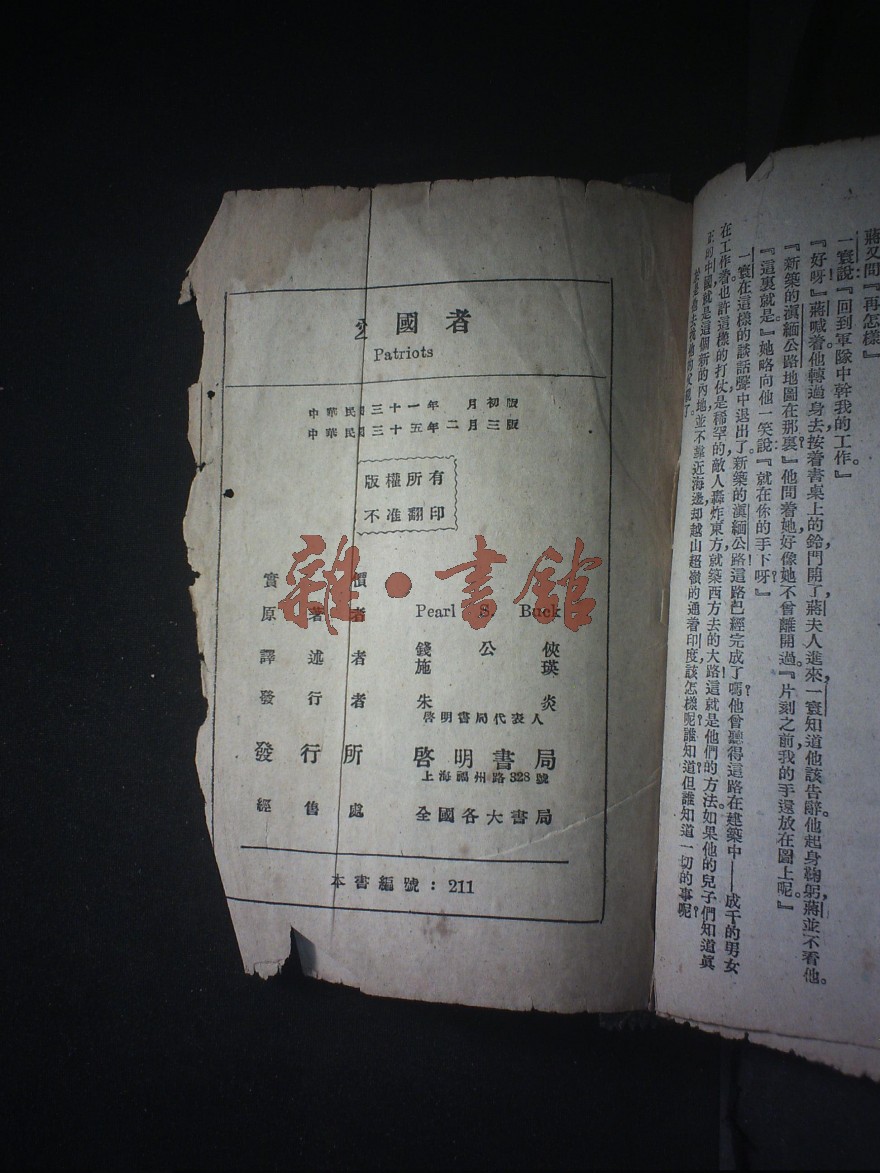 愛國者
Patriots
中華民國三十一年 月初版
中華民國三十五年二月三版
版權所有
不准翻印
實 價
原著者 Pearl S. Buck
譯述者 錢公俠
施瑛
發行者 朱炎
啓明書局代表人
發行所 啓明書局
上海福州路328號
經售處 全國各大書局
本書編號：211
雜·書館
蔣又問『再怎樣』
一寰說『回到軍隊中幹我的工作。』
『好呀』蔣喊着他轉過身去按着書桌上的鈴門開了，蔣夫人進來，一寰知道他該告辭。他起身鞠躬，蔣並不看他。
『新築的滇緬公路地圖在那裏？』他問着她好像她不曾離開過。『片刻之前我的手還放在圖上呢。』
『這裏就是』她略向他一笑說：『就在你的手下呀！』
一寰在這樣的談話聲中退出了。新築的滇緬公路！這路已經完成了嗎？他曾聽得這路在建築中——成千的男女
在工作着也許這樣的打仗是稀罕的敵人轟炸東方就築西方去的大路這就是他們的方法。如果他的兒子們知道眞
正的中國就是這個新的內地並不靠近海邊却越山超嶺的通着印度該怎樣呢？誰知道但誰知道一切的事呢？